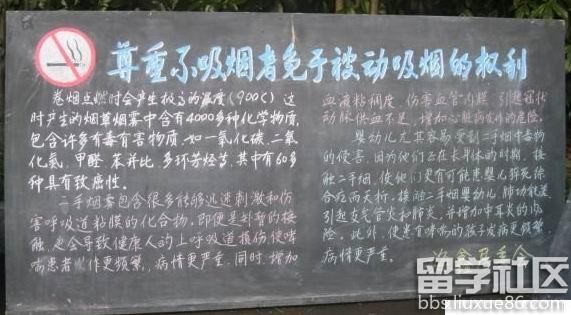 尊重不吸烟者免于被动吸烟的权利
卷烟点燃时会产生极高的温度(900C)这
时产生的烟草烟雾中含有4000多种化学物质,
包含许多有毒有害物质,如一氧化碳、二氧
化氮、甲醛 苯并比、多环芳烃等,其中有60多
种具有致癌性。
二手烟雾包含很多能够迅速刺激和伤
害呼吸道粘膜的化合物,即便是短暂的接
触,也会导致健康人的上呼吸道损伤,使哮
喘患者发作更频繁,病情更严重。同时,增加
血液粘稠度,伤害血管内膜,引起冠状
动脉供血不足,增加心脏病发作的危险。
婴幼儿尤其容易受到二手烟中毒物
的侵害,因为他们正在长身体的时期,接
触二手烟,使他们更有可能患婴儿猝死综
合症而夭折。接触二手烟婴幼儿,肺功能差,
引起支气管炎和肺炎,并增加中耳炎的危
险。此外,使患有哮喘的孩子发病更频繁,
病情更严重。
留学社区
bbs.liuxue86.com